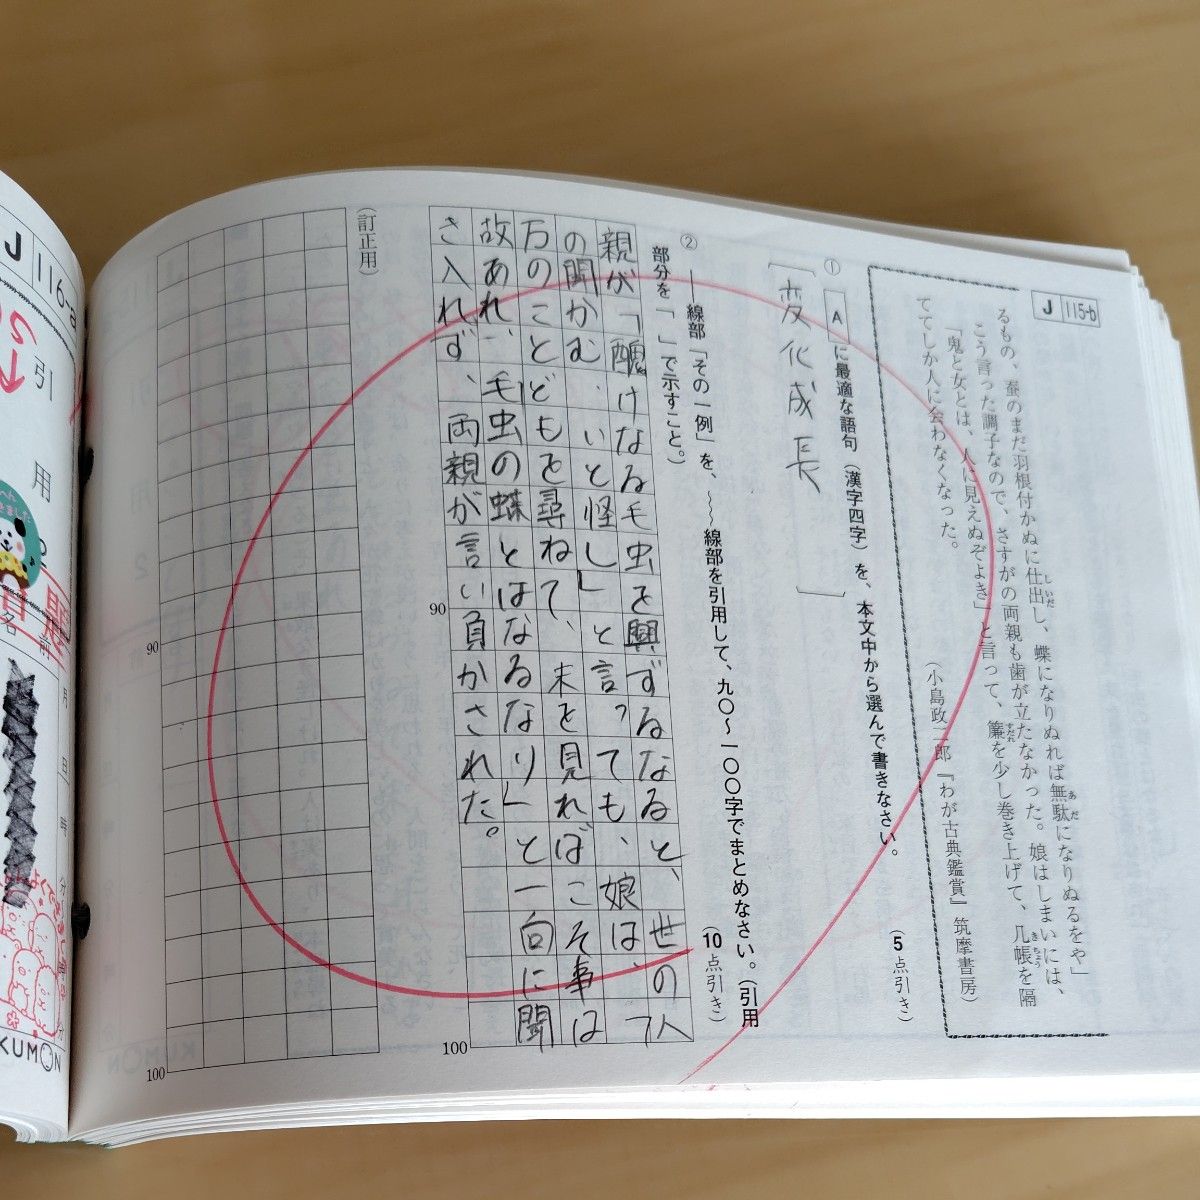 J 115-b
るもの、蚕のまだ羽根付かぬに仕出し、蝶になりぬれば無駄になりぬるをや」
しいだ
あだ
こう言った調子なので、さすがの両親も歯が立たなかった。娘はしまいには、
「鬼と女とは、人に見えぬぞよき」と言って、簾を少し巻き上げて、几帳を隔
すだれ
きちょう
ててしか人に会わなくなった。
(小島政二郎『わが古典鑑賞』筑摩書房)
① Aに最適な語句(漢字四字)を、本文中から選んで書きなさい。
(5点引き)
〔変化成長〕
② ――線部「その一例」を、〜〜線部を引用して、九〇〜一〇〇字でまとめなさい。(引用
部分を「 」で示すこと。)
(10点引き)
親が「醜けなる毛虫を興ずるなると、世の人
の聞かむ、いと怪し」と言っても、娘は、「
万のことどもを尋ねて、末を見ればこそ事は
故あれ、毛虫の蝶とはなるなり」と一向に聞
さ入れず、両親が言い負かされた。
90
100
(訂正用)
90
100
J 116-a
引用
名前
月
日
時
分
KUMON